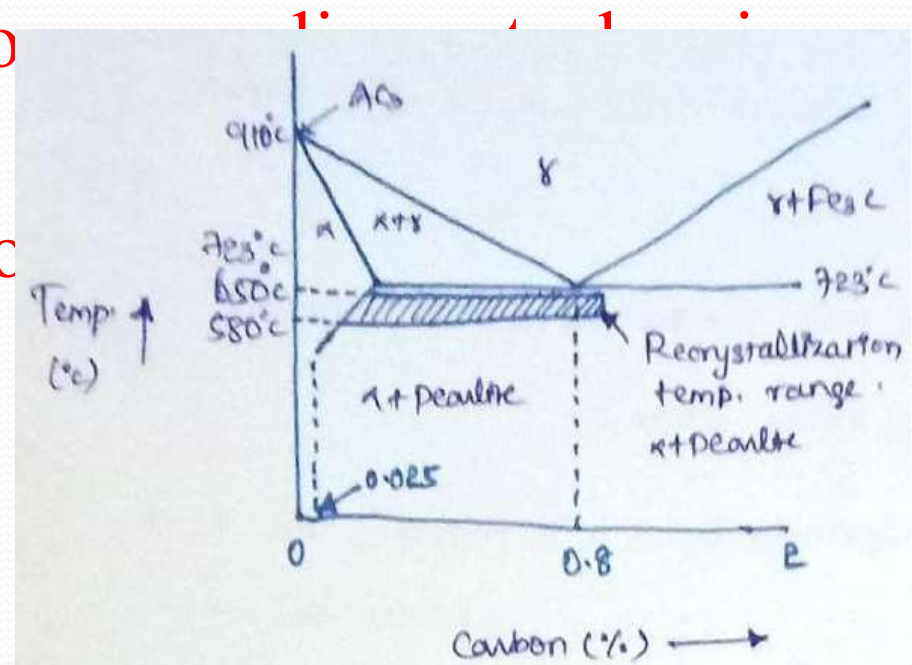 AC3
910°C
γ
α
α+γ
γ+Fe3C
723°C
650°C
580°C
723°C
Temp.
(°c)
Recrystallization
temp. range.
α+Pearlite
α+Pearlite
0.025
0
0.8
2
Carbon (%)